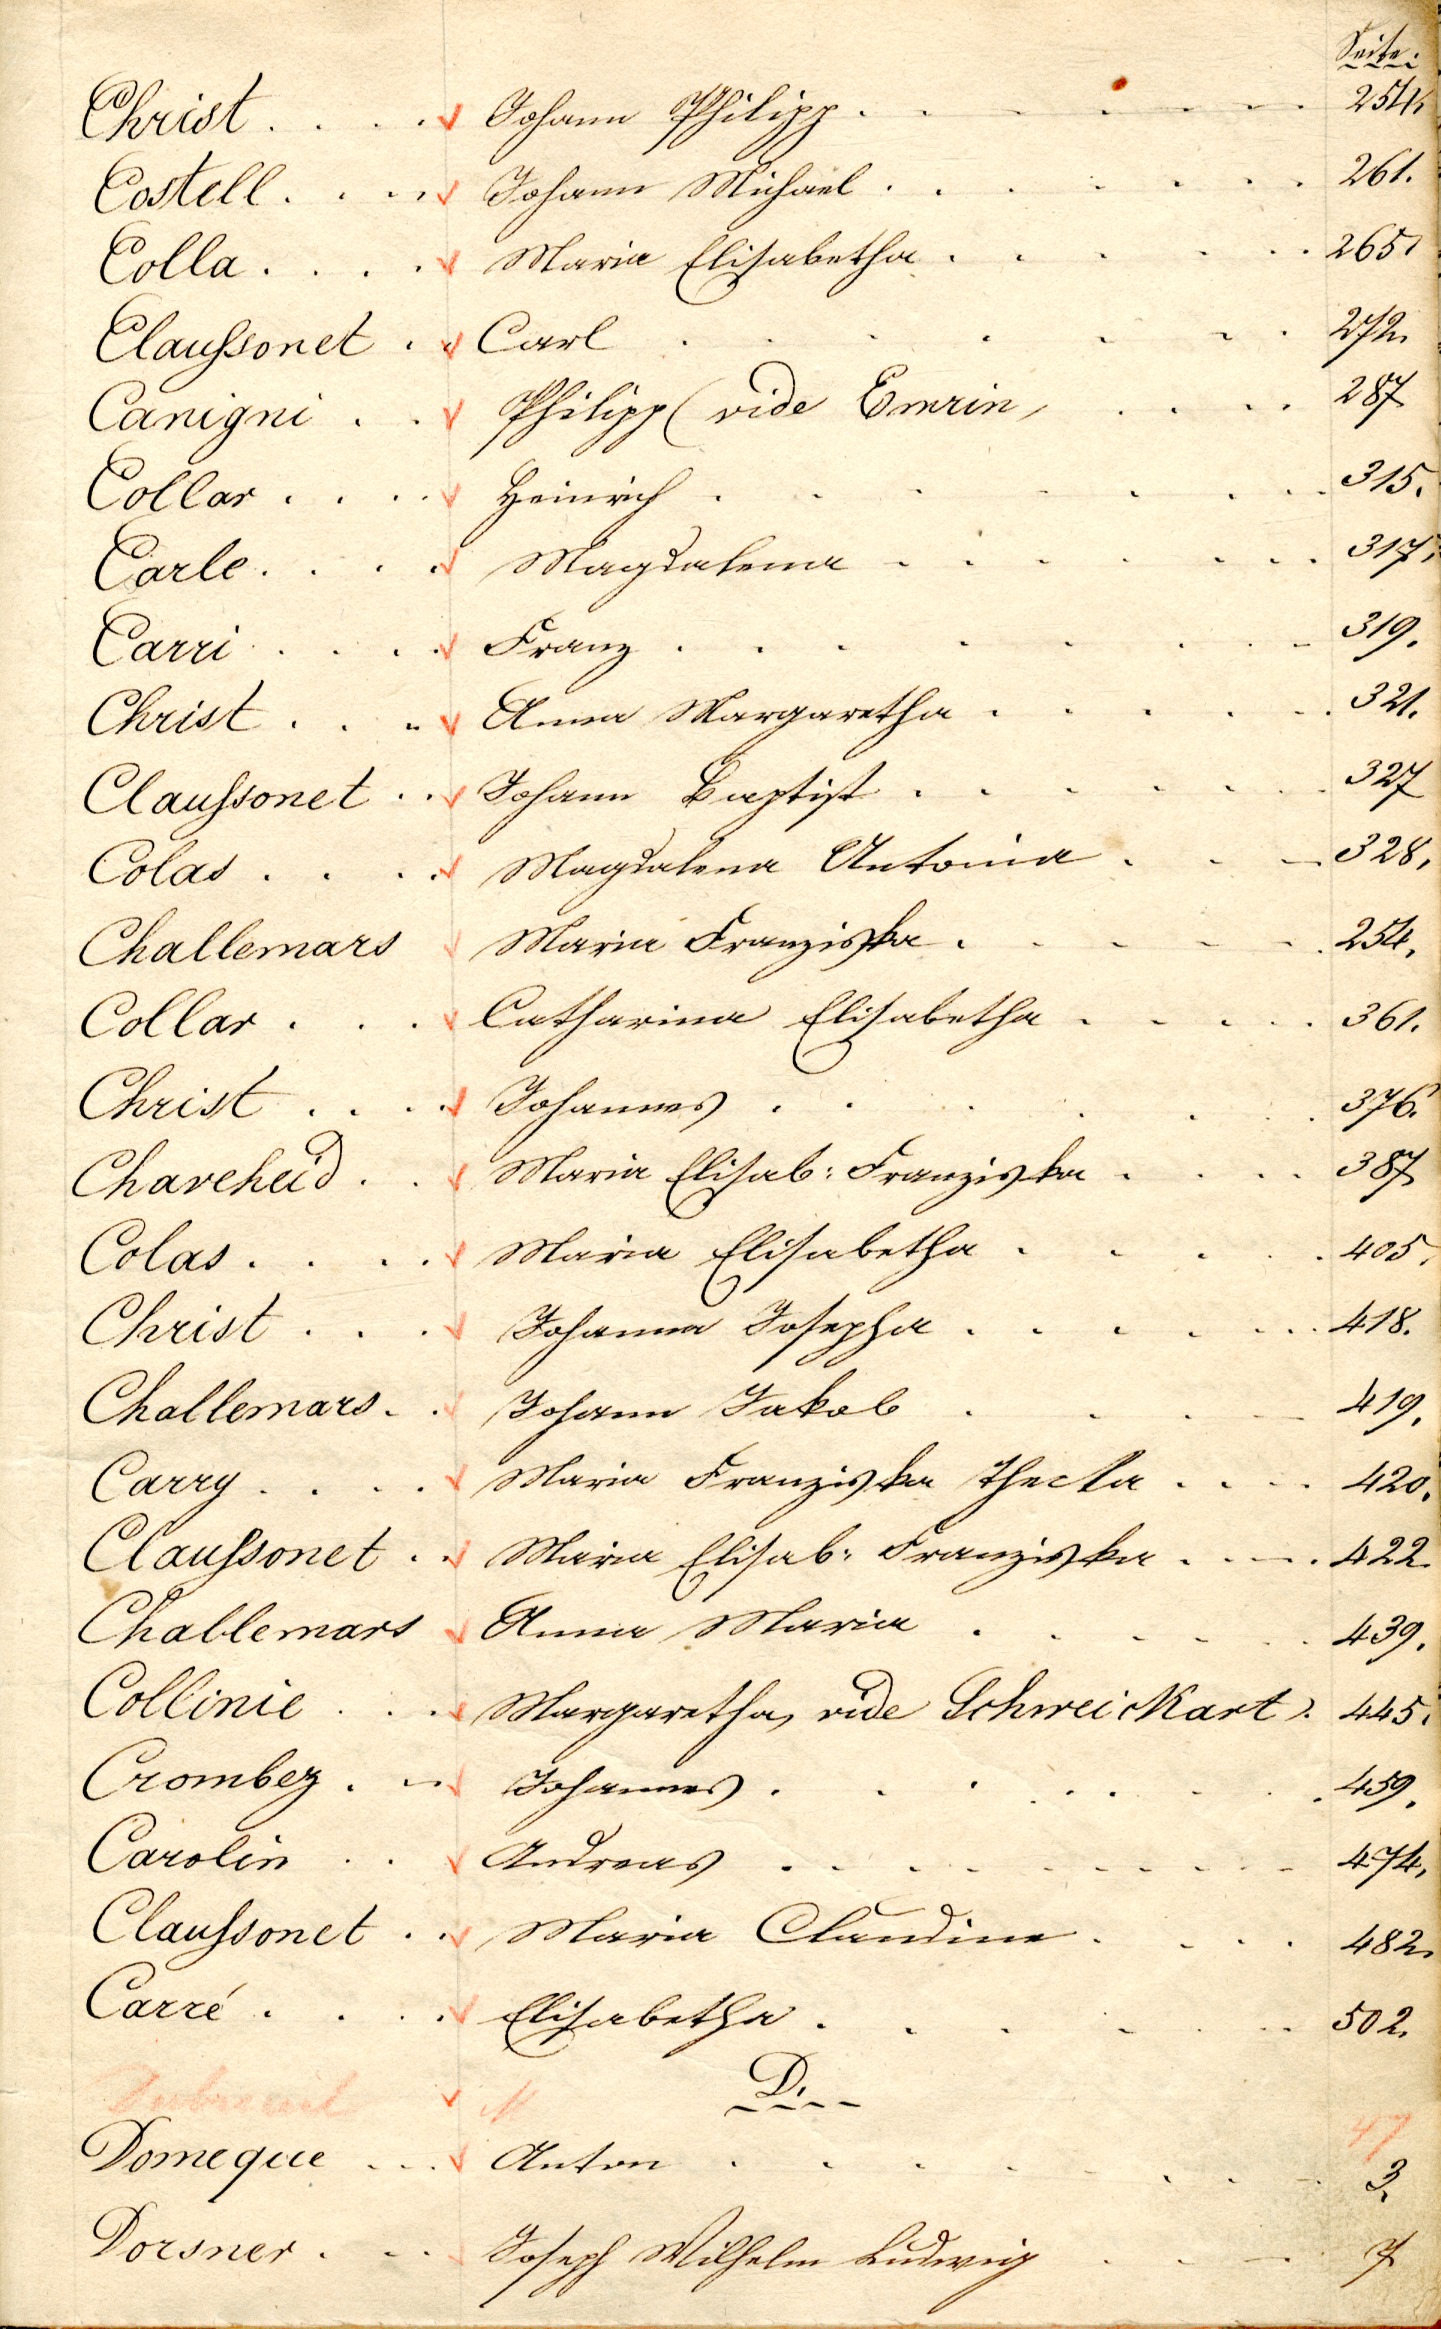 Seite.
Christ . . . . Johann Philipp . . . . . . . 254.
Costell . . . . Johann Michael . . . . . . . 261.
Colla . . . . Maria Elisabetha . . . . . . 265.
Claussonet . . Carl . . . . . . . 272.
Canigni . . Philipp (vide Emrin, . . . . 287
Collar . . . . Heinrich . . . . . . . . 315.
Carle . . . . Magdalena . . . . . . . 317.
Carri . . . . Franz . . . . . . . . 319.
Christ . . . Anna Margaretha . . . . . . 321.
Claussonet . . Johann Baptist . . . . . . . 327
Colas . . . . Magdalena Antonia . . . 328.
Challemars Maria Franziska . . . . . . 254.
Collar . . . Catharina Elisabetha . . . . . 361.
Christ . . . . Johannes . . . . . . 376.
Chaveheid . . Maria Elisab: Franziska . . . . 387
Colas . . . . Maria Elisabetha . . . . . 405.
Christ . . . Johanna Josepha . . . . . . . 418.
Challemars . . Johann Jakob . . . . 419.
Carry . . . . Maria Franziska Thecka . . . . 420.
Claussonet . . Maria Elisab: Franziska . . . . 422.
Challemars Anna Maria . . . . . . 439.
Collinie . . . Margaretha, vide Schweickart). 445.
Crombez . . . Johannes . . . . . . . . 459.
Carolin . . Andreas . . . . . . . . . 474.
Claussonet . . Maria Claudine . . . . 482.
Carré . . . . Elisabetha . . . . . . 502.
D.
Dubreuil M 47
Domeque . . . Anton . . . . . . . 3.
Dorsner . . . Joseph Wilhelm Ludwig . . . . 7.